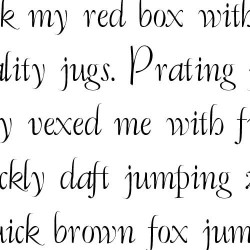 k my red box with
ality jugs. Prating
y vexed me with f
ckly daft jumping z
uick brown fox jum